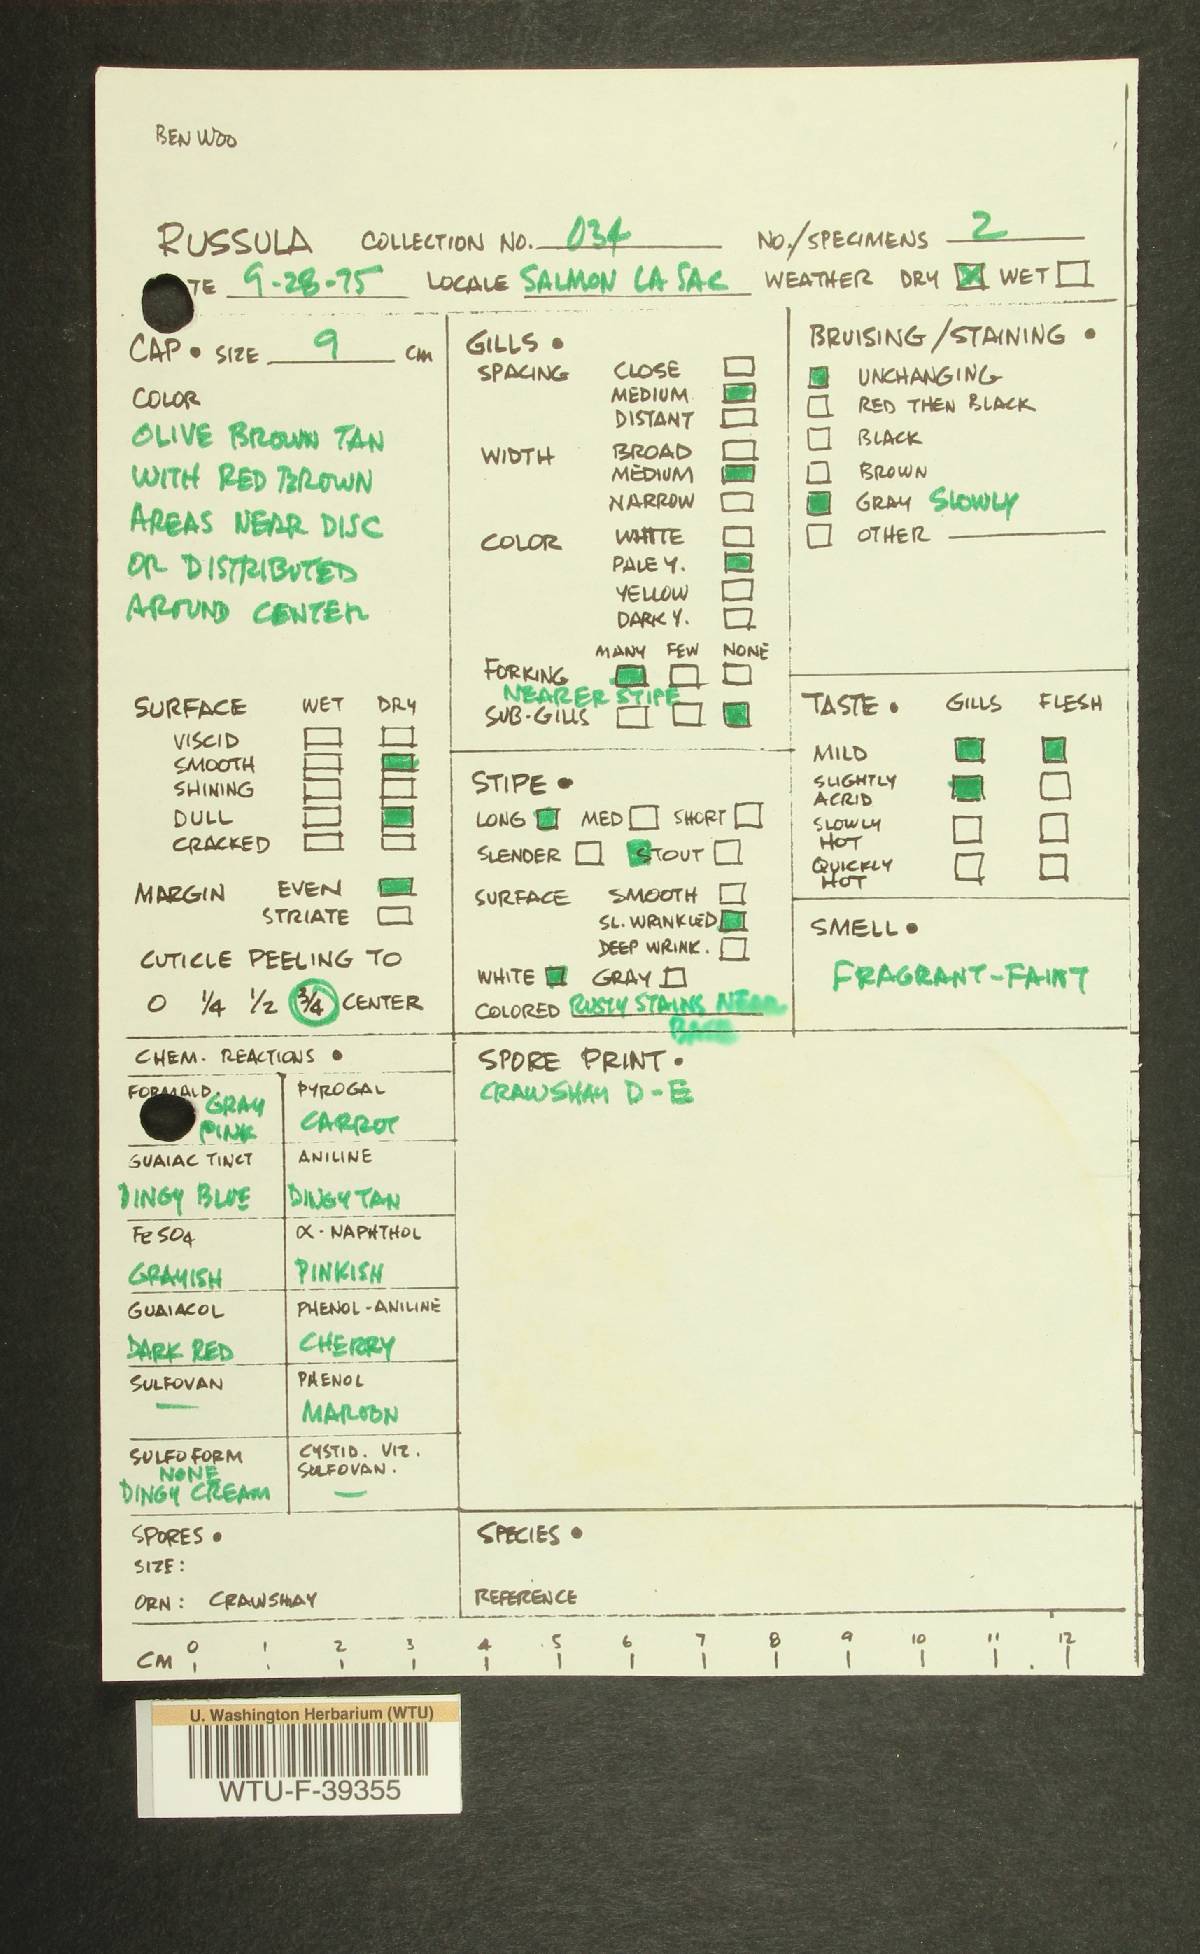 BEN WOO
RUSSULA COLLECTION NO. 034 NO./SPECIMENS 2
TE 9-28-75 LOCALE SALMON LA SAC WEATHER DRY WET
CAP • SIZE 9 CM
COLOR
OLIVE BROWN TAN
WITH RED BROWN
AREAS NEAR DISC
OR DISTRIBUTED
AROUND CENTER
SURFACE WET DRY
VISCID
SMOOTH
SHINING
DULL
CRACKED
MARGIN EVEN
STRIATE
CUTICLE PEELING TO
0 1/4 1/2 3/4 CENTER
GILLS •
SPACING CLOSE
MEDIUM
DISTANT
WIDTH BROAD
MEDIUM
NARROW
COLOR WHITE
PALE Y.
YELLOW
DARK Y.
MANY FEW NONE
FORKING
NEARER STIPE
SUB-GILLS
STIPE •
LONG MED SHORT
SLENDER STOUT
SURFACE SMOOTH
SL. WRINKLED
DEEP WRINK.
WHITE GRAY
COLORED RUSTY STAINS NEAR
BASE
BRUISING/STAINING •
UNCHANGING
RED THEN BLACK
BLACK
BROWN
GRAY SLOWLY
OTHER
TASTE • GILLS FLESH
MILD
SLIGHTLY
ACRID
SLOWLY
HOT
QUICKLY
HOT
SMELL •
FRAGRANT-FAINT
CHEM. REACTIONS •
FORMALD.
GRAY
PINK
PYROGAL
CARROT
GUAIAC TINCT
DINGY BLUE
ANILINE
DINGY TAN
FeSO4
GRAYISH
α-NAPHTHOL
PINKISH
GUAIACOL
DARK RED
PHENOL-ANILINE
CHERRY
SULFOVAN
—
PHENOL
MAROON
SULFO FORM
NONE
DINGY CREAM
CYSTID. VIZ.
SULFOVAN.
—
SPORE PRINT •
CRAWSHAY D-E
SPORES •
SIZE:
ORN: CRAWSHAY
SPECIES •
REFERENCE
CM 0 1 2 3 4 5 6 7 8 9 10 11 12
U. Washington Herbarium (WTU)
WTU-F-39355